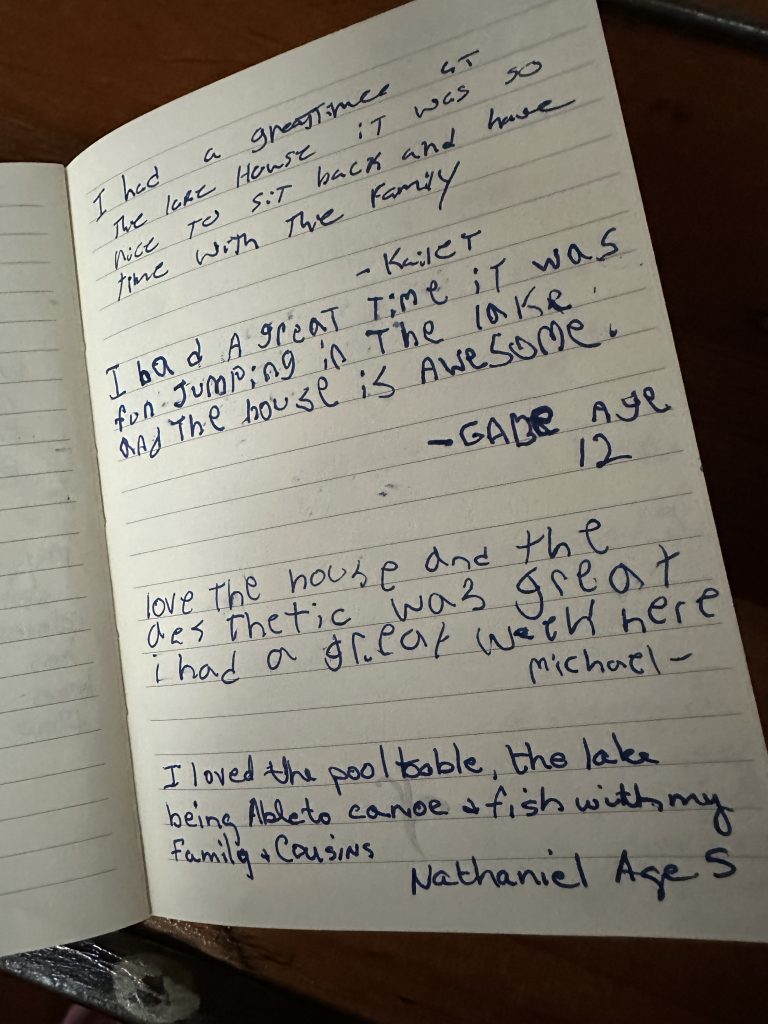 I had a great Timee at
The lake House iT was so
nice To siT back and have
time with The Family
- Kailer
I had A great Time iT was
fun Jumping in The lake
and The house is AwesOme.
- GABe Age
12
love the house and the
aes thetic was great
i had a great week here
michael -
I loved the pool table, the lake
being Able to canoe & fish with my
Family & Cousins
Nathaniel Age 5